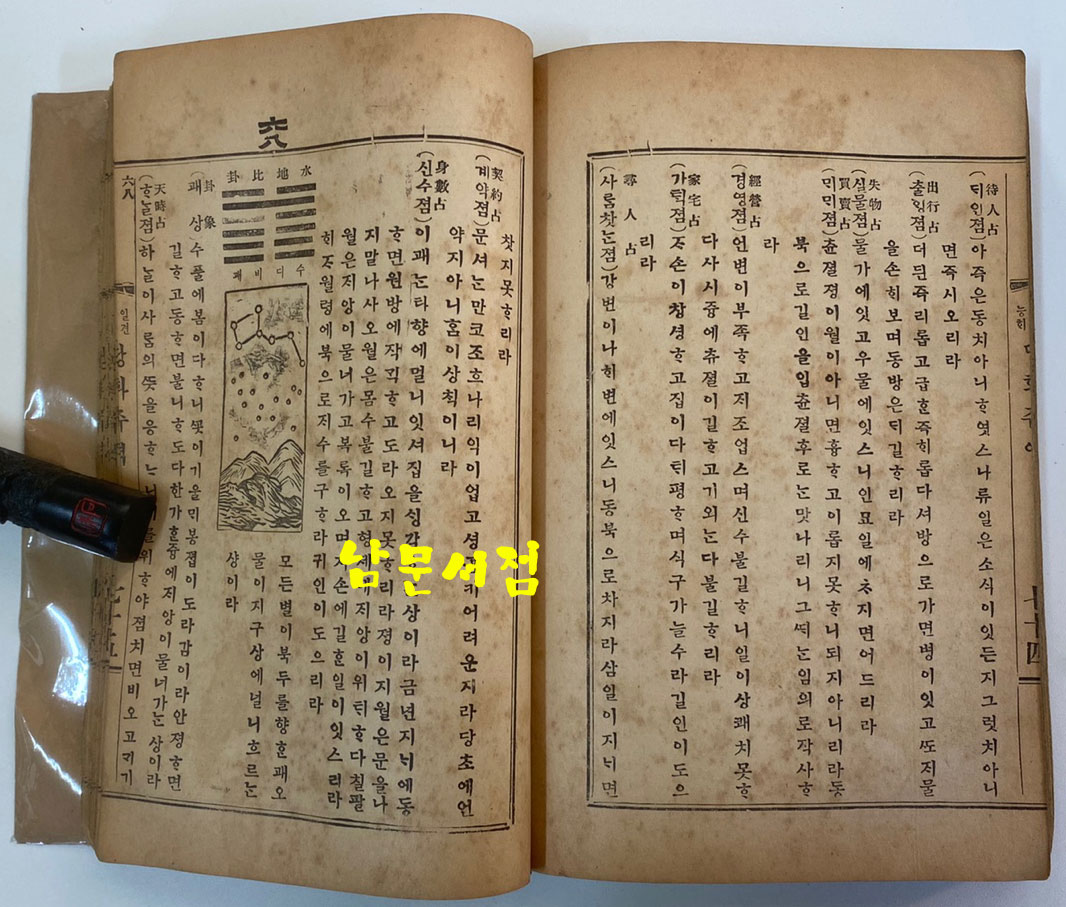 待人占
(ᄃᆡ인졈)아즉은동치아니ᄒᆞ엿스나류일은소식이잇든지그럿치아니
면즉시오리라
出行占
(츌ᄒᆡᆼ졈)더듼즉리롭고급ᄒᆞᆫ즉ᄒᆡ롭다셔방으로가면병이잇고ᄯᅩᄌᆡ물
을손ᄒᆡ보며동방은ᄃᆡ길ᄒᆞ리라
失物占
(실물졈)물가에잇고우물에잇스니인묘일에ᄎᆞ지면어드리라
買賣占
(ᄆᆡᄆᆡ졈)츈졀졍이월이아니면흉ᄒᆞ고이롭지못ᄒᆞ니되지아니리라동
북으로길인을입츈졀후로ᄂᆞᆫ맛나리니그ᄯᆡᄂᆞᆫ임의로작사ᄒᆞ
라
經營占
(경영졈)언변이부족ᄒᆞ고ᄌᆡ조업스며신수불길ᄒᆞ니일이상쾌치못ᄒᆞ
다사시즁에츄졀이길ᄒᆞ고기외ᄂᆞᆫ다불길ᄒᆞ리라
家宅占
(가ᄐᆡᆨ졈)ᄌᆞ손이창셩ᄒᆞ고집이다ᄐᆡ평ᄒᆞ며식구가늘수라길인이도으
리라
尋人占
(사ᄅᆞᆷ찻ᄂᆞᆫ졈)강변이나ᄒᆡ변에잇스니동북으로차지라삼일이지ᄂᆡ면
七十四
六八
찻지못ᄒᆞ리라
契約占
(계약졈)문셔ᄂᆞᆫ만코조흐나리익이업고셩 어려운지라당초에언
약지아니홈이상ᄎᆡᆨ이니라
身數占
(신수졈)이괘ᄂᆞᆫ타향에멀니잇셔집을ᄉᆡᆼ각 상이라금년지ᄂᆡ에동
ᄒᆞ면원방에작ᄀᆡᆨᄒᆞ고도라오지못ᄒᆞ리라졍이지월은문을나
지말나사오월은몸수불길ᄒᆞ고형제에ᄌᆡ앙이위ᄐᆡᄒᆞ다칠팔
월은ᄌᆡ앙이물너가고복록이오며ᄌᆞ손에길ᄒᆞᆫ일이잇스리라
ᄒᆡᄌᆞ월령에북으로ᄌᆡ수를구ᄒᆞ라귀인이도으리라
水地比卦
수디비괘
모든별이북두를향ᄒᆞᆫ괘오
물이지구상에널니흐르ᄂᆞᆫ
샹이라
卦象
(괘상)수풀에봄이다ᄒᆞ니ᄭᅩᆺ이기을ᄆᆡ봉졉이도라감이라안졍ᄒᆞ면
길ᄒᆞ고동ᄒᆞ면불니ᄒᆞ도다한가ᄒᆞᆫ즁에ᄌᆡ앙이물너가ᄂᆞᆫ상이라
天時占
(ᄒᆞᄂᆞᆯ졈)하ᄂᆞᆯ이사ᄅᆞᆷ의ᄯᅳᆺ을응ᄒᆞᄂᆞ 를위ᄒᆞ야졈치면비오고ᄀᆡ기
六八
일견
남문서점